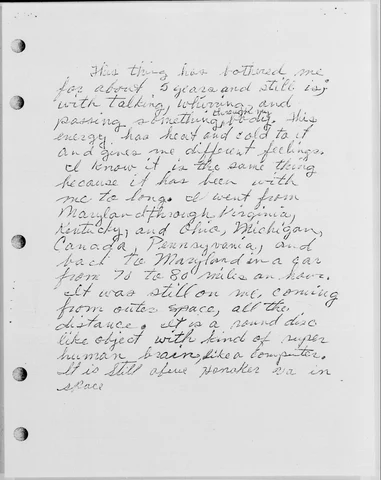 This thing has bothered me
for about 5 years and still is;
with talking, whirring, and
passing something through my body. This
energy has heat and cold to it
and gives me different feelings.
I know it is the same thing
because it has been with
me to long. I went from
Maryland through Virginia,
Kentucky, and Ohio, Michigan,
Canada, Pennsylvania, and
back to Maryland in a car
from 70 to 80 miles an hour.
It was still on me, coming
from outer space, all the
distance. It is a round disc
like object with kind of super
human brain, like a computer.
It is still in
space